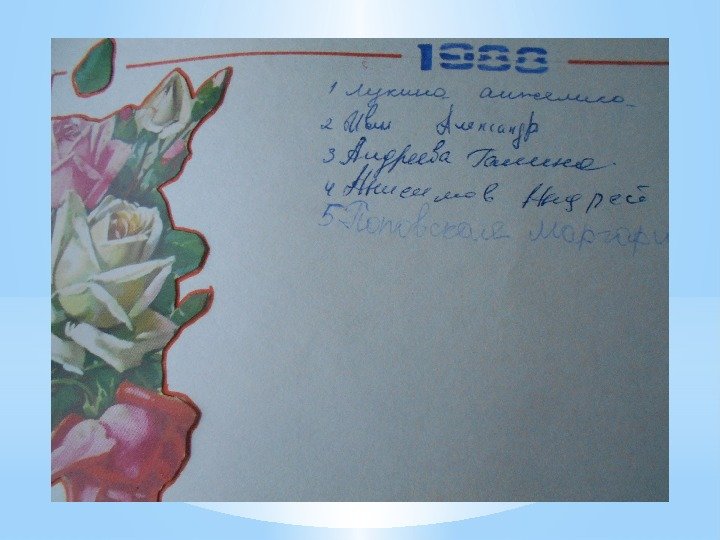 1988
1 Лукина анжелика
2 Иван Александр
3 Андреева Галина.
4 Анисимов Андрей
5 Поповская Маргари